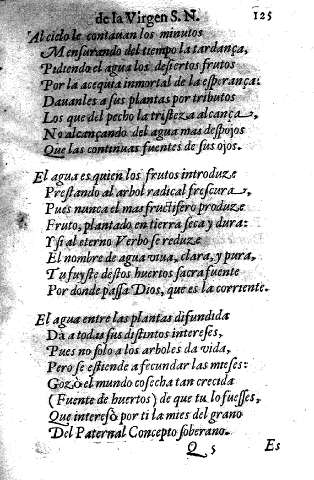 de la Virgen S. N. 125
Al cielo le contauan los minutos
Mensurando del tiempo la tardança,
Pidiendo el agua los desiertos frutos
Por la acequia inmortal de la esperança:
Dauanles a sus plantas por tributos
Los que del pecho la tristeza alcança,
No alcançando del agua mas despojos
Que las continuas fuentes de sus ojos.
El agua es quien los frutos introduze
Prestando al arbol radical frescura,
Pues nunca el mas fructifero produze
Fruto, plantado en tierra seca y dura:
Y si al eterno Verbo se reduze
El nombre de agua viua, clara, y pura,
Tu fuyste destos huertos sacra fuente
Por donde passa Dios, que es la corriente.
El agua entre las plantas difundida
Da a todas sus distintos intereses,
Pues no solo a los arboles da vida,
Pero se estiende a fecundar las mieses:
Gozò el mundo cosecha tan crecida
(Fuente de huertos) de que tu lo fuesses,
Que interesò por ti la mies del grano
Del Paternal Concepto soberano.
Q 5 Es